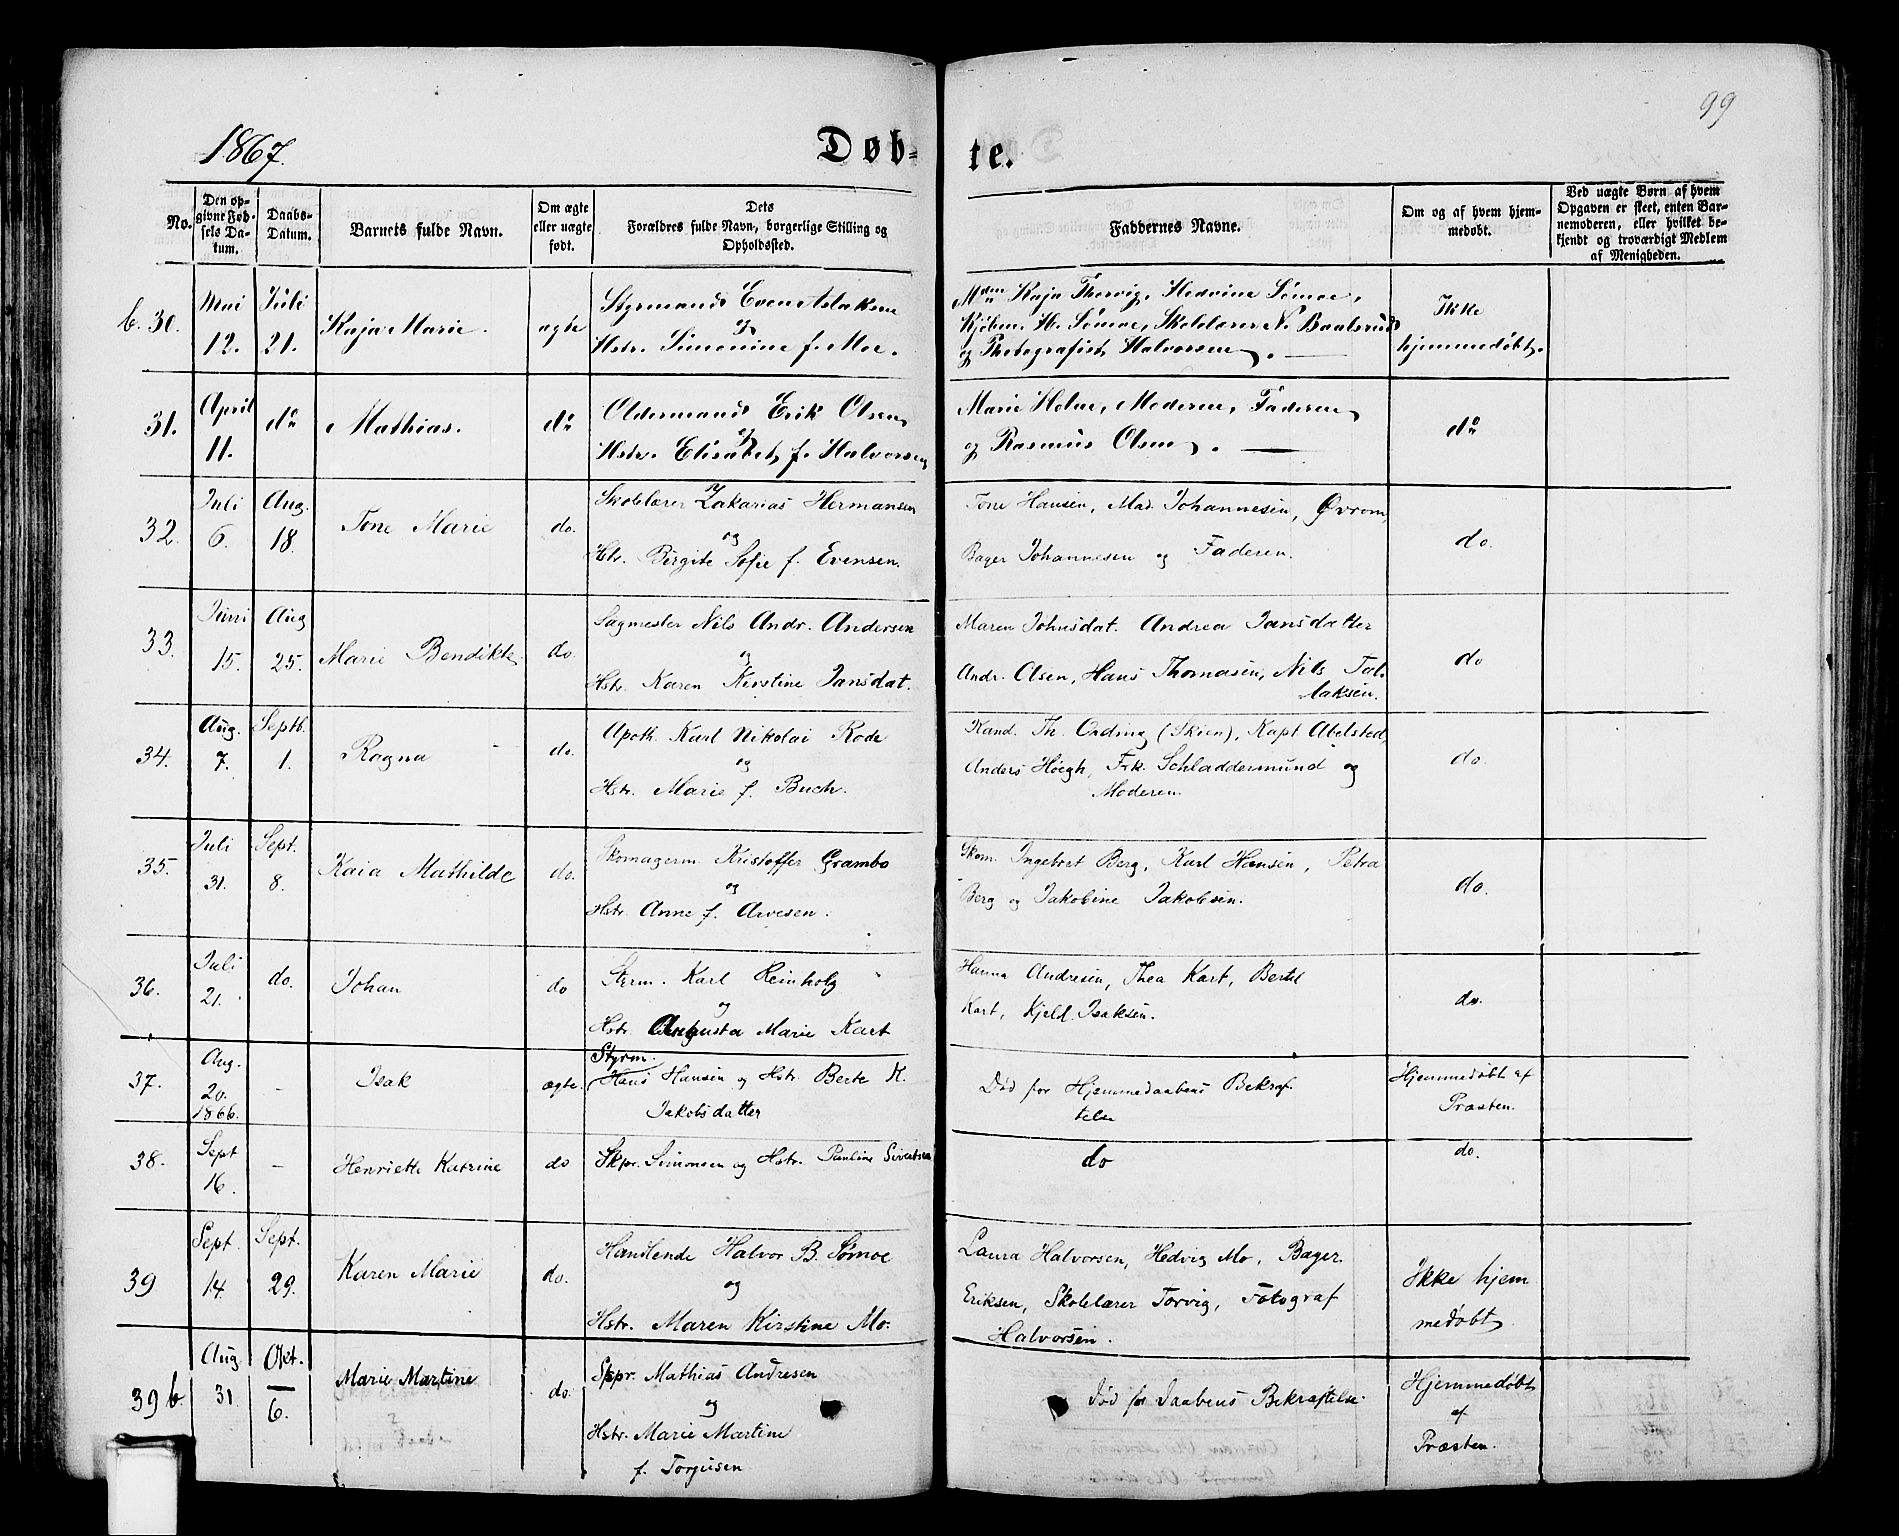 99
1867.
Døb-
te.
No.
Den op-
givne Fød-
sels Da-
tum.
Daabs-
Datum.
Barnets fulde Navn.
Om ægte
eller uægte
født.
Dets
Forældres fulde Navn, borgerlige Stilling og
Opholdssted.
Faddernes Navne.
Om og af hvem hjem-
medøbt.
Ved uægte Børn af hvem
Opgaven er skeet, enten Bar-
nemoderen, eller hvilket be-
kjendt og troværdigt Medlem
af Menigheden.
b. 30.
Mai
12.
Juli
21.
Kaja Marie.
ægte
Styrmand Even Aslaksen
og
Hstr. Simonine f. Moe.
Mdm Kaja Thorvig, Hedvine Sømoe,
Kjøbm. H. Sømoe, Skolelærer N. Baalsrud
og Photografist Halvorsen.
Ikke
hjemmedøbt.
31.
April
11.
do
Mathias.
do
Oldermand Erik Olsen
og
Hstr. Elisabet f. Halvorsen
Marie Holm, Moderen, Faderen
og Rasmus Olsen.
do
32.
Juli
6.
Aug.
18.
Tone Marie
do.
Skolelærer Zakarias Hermansen
og
Hstr. Birgite Sofie f. Evensen.
Tone Hansen, Mad. Johannesen, Øvrom,
Bager Johannesen og Faderen.
do.
33.
Juni
15.
Aug
25.
Marie Bendikte
do.
Sagmester Nils Andr. Andersen
og
Hstr. Karen Kirstine Jansdat.
Maren Johnsdat. Andrea Jansdatter
Andr. Olsen, Hans Thomasen, Nils Tol-
laksen.
do
34.
Aug.
7.
Septb.
1.
Ragna
do.
Apoth. Karl Nikolai Rode
og
Hstr. Marie f. Buch.
Kand. Th. Ording (Skien), Kapt Abelsted,
Anders Høegh, Frk. Schladdermund og
Moderen.
do.
35.
Juli
31.
Sept.
8.
Kaia Mathilde
do.
Skomagerm. Kristoffer Grambo
og
Hstr. Anne f. Arvesen.
Skom. Ingebort Berg, Karl Hansen, Petra
Berg og Jakobine Jakobsen.
do.
36.
Juli
21.
do.
Johan
do
Styrm. Karl Reinholg
og
Hstr. Augusta Marie Kart
Hanna Andresen, Thea Kart, Bertel
Kart, Kjeld. Isaksen.
do.
37.
Aug.
20.
1866.
-
Isak
ægte.
Styrm.
Hans Hansen og Hstr. Berte K.
Jakobsdatter
Død før Hjemmedaabens Bekræf-
telse
Hjemmedøbt af
Præsten.
38.
Sept
16.
-
Henriette Katrine
do
Skpr. Simonsen og Hstr. Pauline Sivertsen
do
do.
39
Sept.
14.
Sept.
29.
Karen Marie
do.
Handlende Halvor B. Sømoe
og
Hstr. Maren Kirstine Mo.
Laura Halvorsen, Hedvig Mo, Bager
Eriksen, Skolelærer Torvig, Fotograf
Halvorsen.
Ikke hjem
medøbt
39 b.
Aug
31.
Okt.
6.
Marie Martine
do.
Skpr. Mathias Andresen
og
Hstr. Marie Martine
f. Torjusen
Død før Daabens Bekræftelse
Hjemmedøbt
af
Præsten.